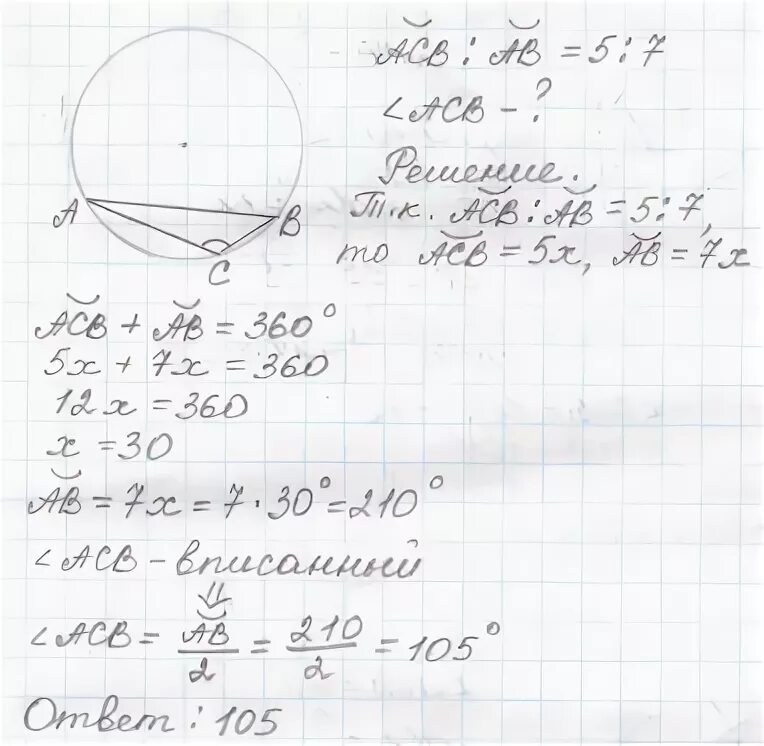 A͝CB : A͝B = 5 : 7
∠ACB - ?
Решение.
Т.к. A͝CB : A͝B = 5 : 7,
то A͝CB = 5x, A͝B = 7x
A
B
C
A͝CB + A͝B = 360°
5x + 7x = 360
12x = 360
x = 30
A͝B = 7x = 7 · 30° = 210°
∠ACB - вписанный
⇓
∠ACB = A͝B/2 = 210/2 = 105°
Ответ : 105